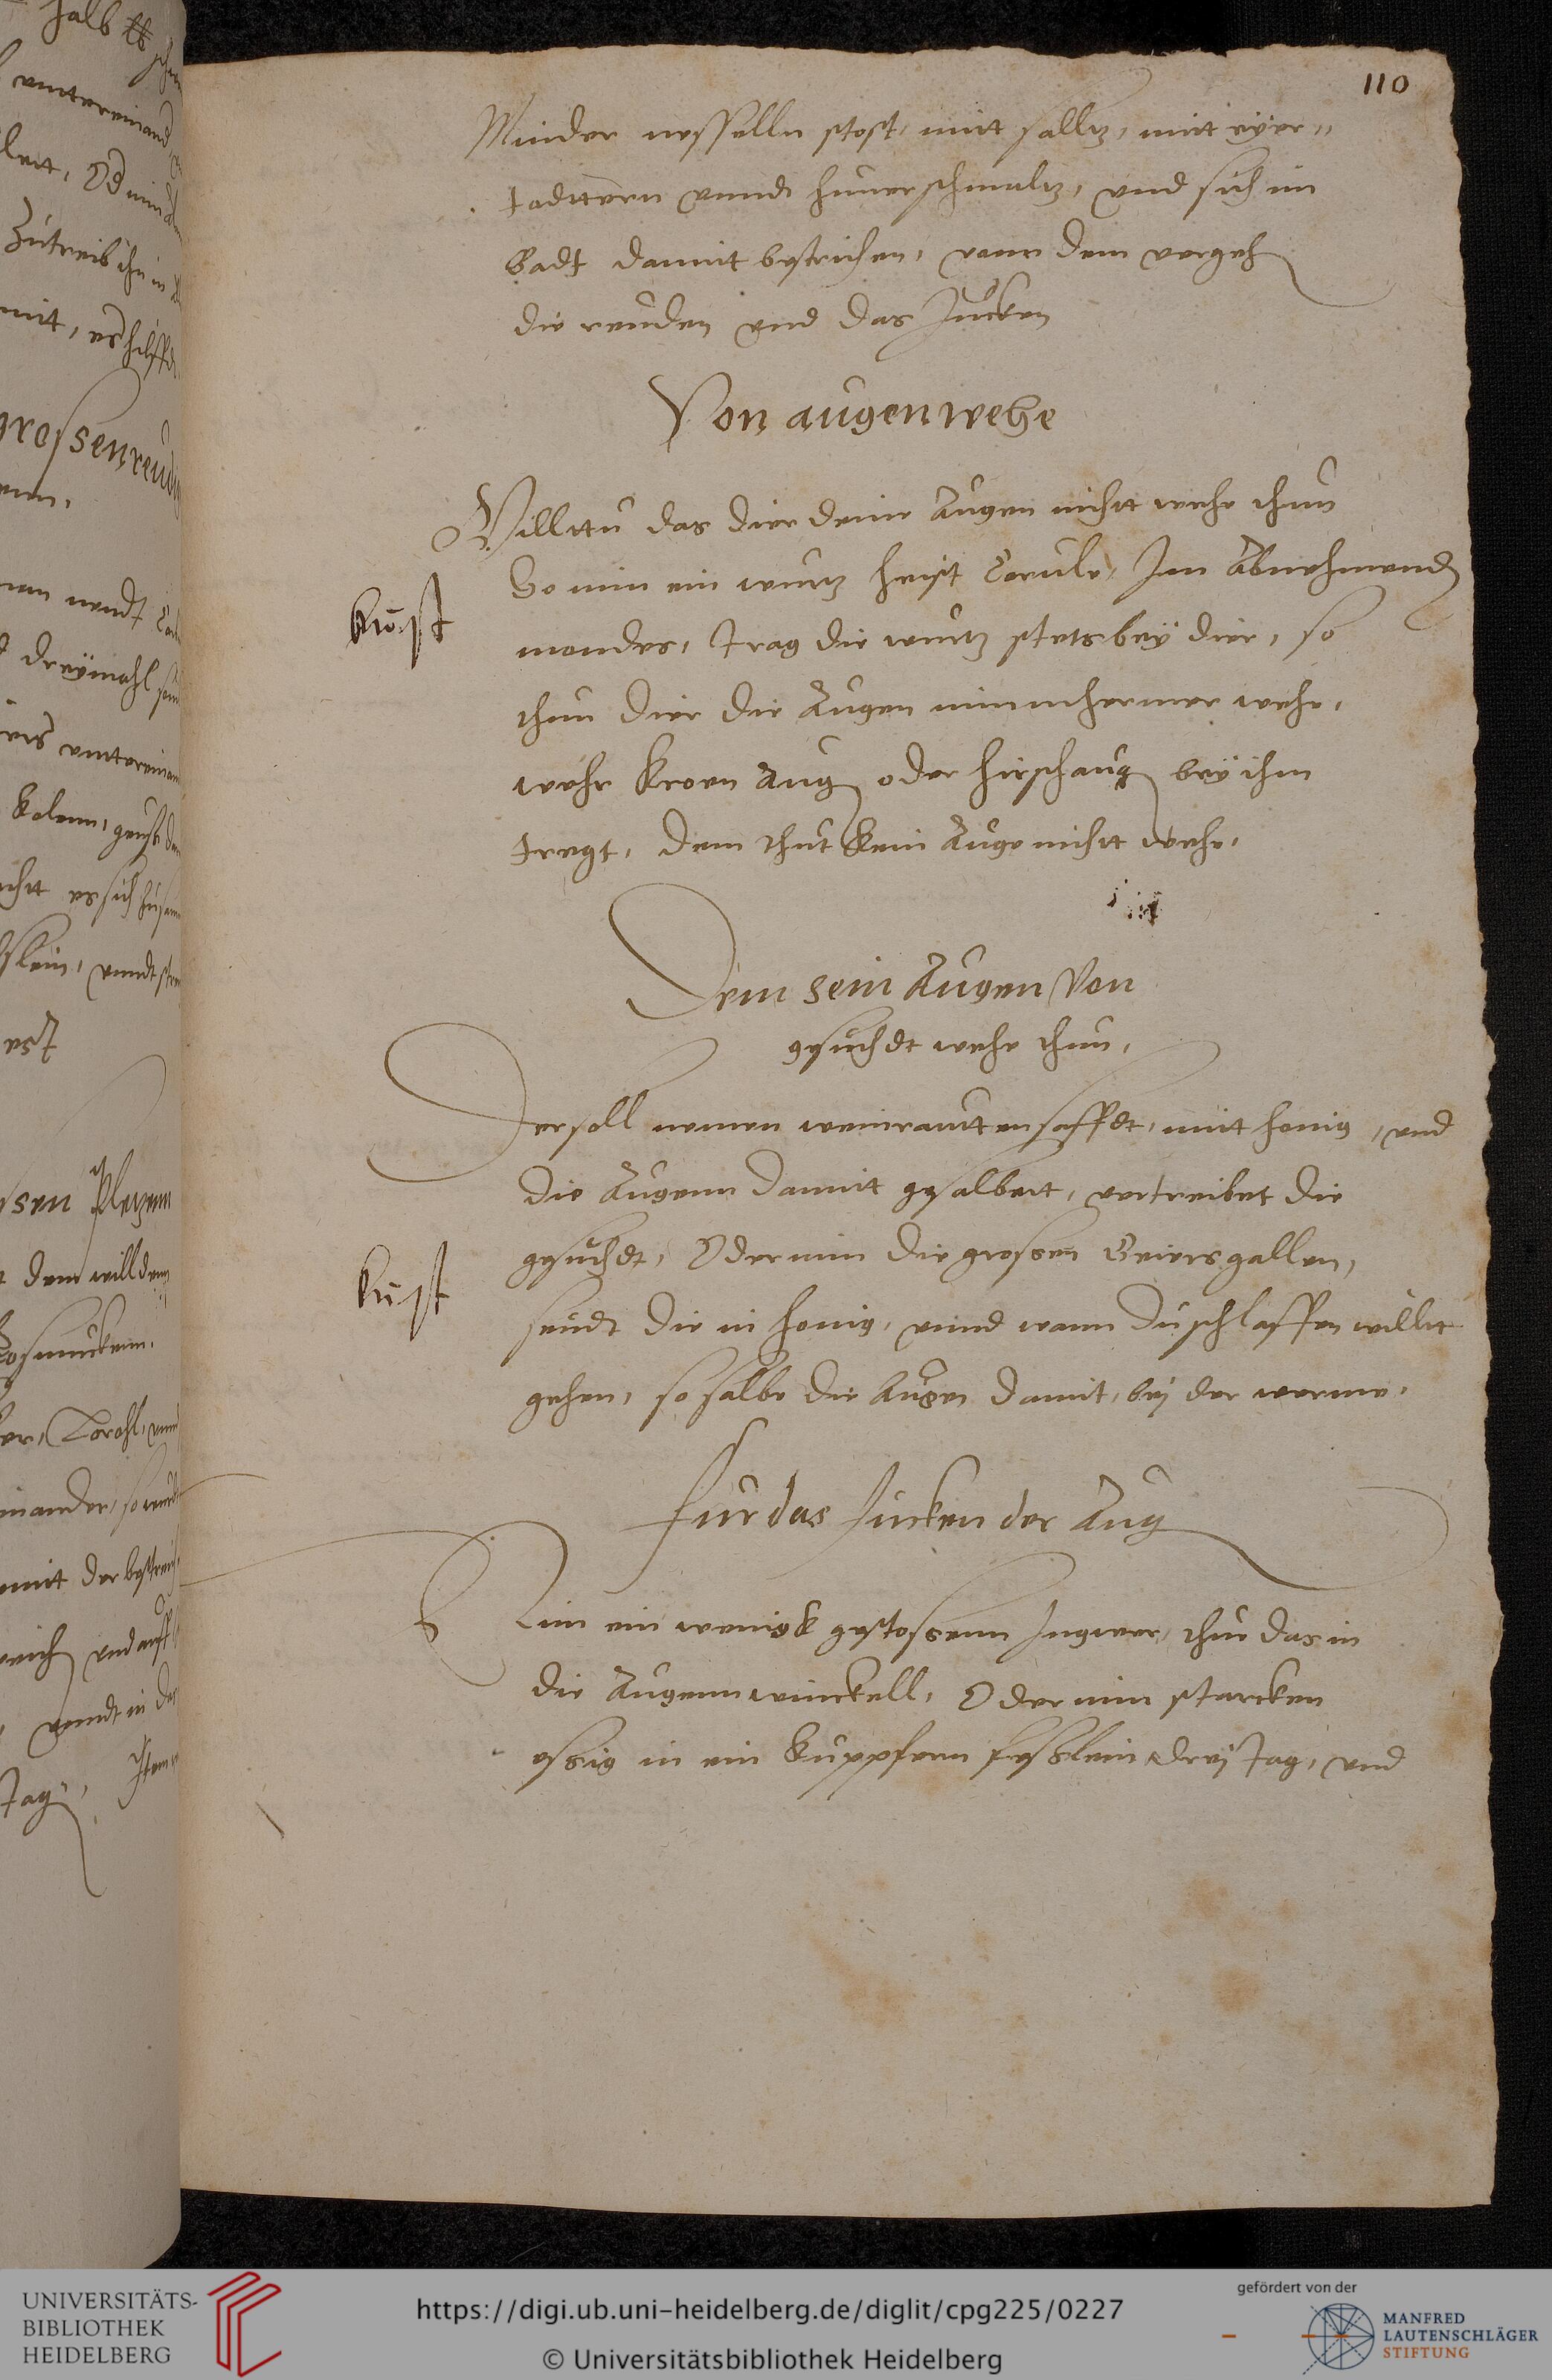 110
Minder nesselln stost, mitt salltz, mitt eÿer„
tadttern vnnd hunerschmaltz, vnd sich im
badt damit bestrichen, vonn dem vergeh
die reuden vnd das Jucken
Von augen wehe
Willttu das dier deine Augen nichtt wehe thun
So nim ein wurtz heist Verule, Im Abnehmend
kunst
mondes, trag die wurtz stets beÿ dier, so
thun dier die Augen nimmhermer wehe,
wehr kroen Aug oder hirschaug beÿ ihm
tregt, dem thut kein Auge nichtt wehe,
Dem sein Augen Von
gesuchdt wehe thun,
Der soll nemen weinrautten safftt, mitt honig, vnd
die Augenn damit gesalbett, vertreibet die
gesuchdt, Oder nim die grossen Geiersgallen,
kunst
seudt die in honig, vnnd wann du schlaffen willtt
gehen, so salbe die Augen damit, bej der werme,
fur das Jucken der Aug
Nim ein wenigk gestossenn Ingwer, thue das in
die Augennwinckell, Oder nim starcken
essig in ein kuppfern fesslein dreÿ tag, vnd
UNIVERSITÄTS-
BIBLIOTHEK
HEIDELBERG
https://digi.ub.uni-heidelberg.de/diglit/cpg225/0227
© Universitätsbibliothek Heidelberg
gefördert von der
MANFRED
LAUTENSCHLÄGER
STIFTUNG